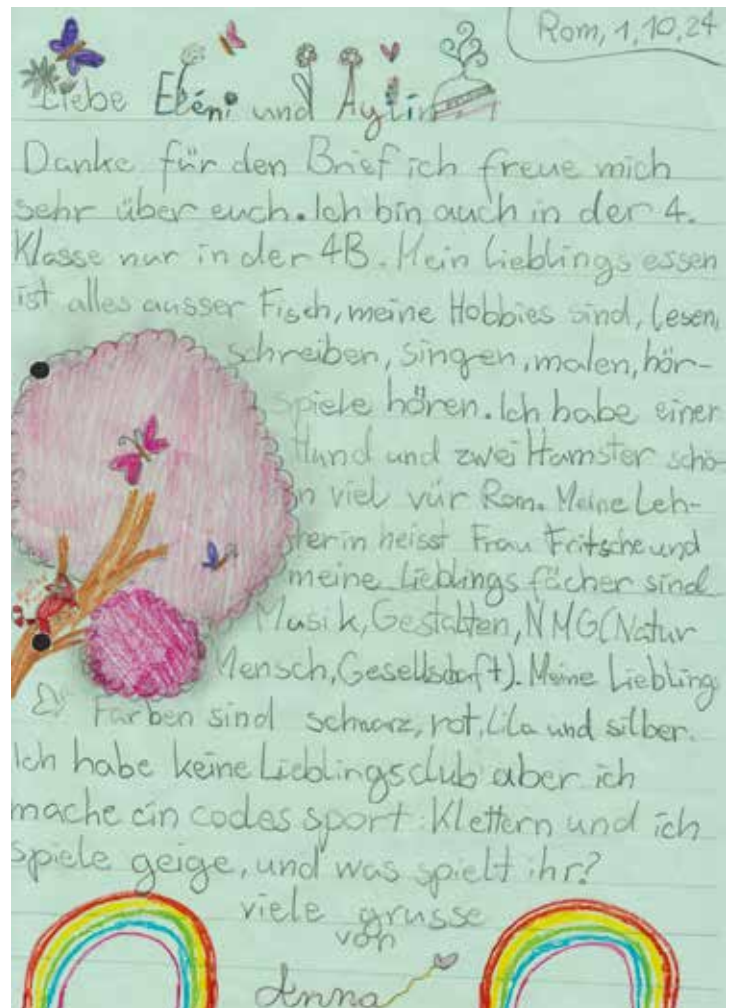 Rom, 1,10,24
Liebe Eléni und Aylin
Danke für den Brief ich freue mich
sehr über euch. Ich bin auch in der 4.
Klasse nur in der 4B. Mein Lieblings essen
ist alles ausser Fisch, meine Hobbies sind, lesen,
schreiben, singen, malen, hör-
spiele hören. Ich habe einer
Hund und zwei Hamster schö-
n viel vür Rom. Meine Leh-
rerin heisst Frau Fritsche und
meine Lieblings fächer sind
Musik, Gestalten, NMG (Natur
Mensch, Gesellschaft). Meine Liebling
Farben sind schwarz, rot, Lila und silber.
Ich habe keine Lieblingsclub aber ich
mache ein codes sport: Klettern und ich
spiele geige, und was spielt ihr?
viele grusse
von
Anna